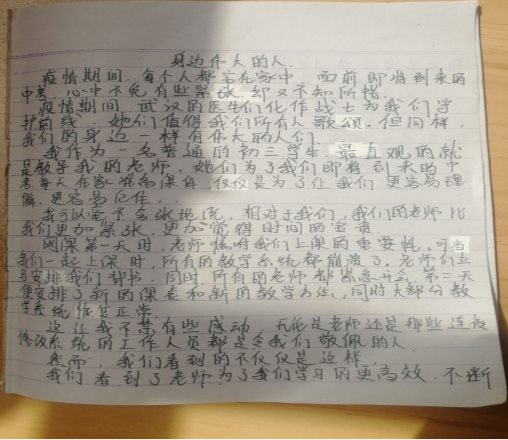 身边伟大的人
疫情期间，每个人都宅在家中，面前即将到来的
中考，心中不免有些紧张，却又不知所措。
疫情期间，武汉的医生们化作战士为我们守
护前线，她们值得我们所有人歌颂。但同样，
我们的身边一样有伟大的人们。
我作为一名普通的初三学生，最直观的就
是教导我的老师，她们为了我们即将到来的中
考每天在家准备课件，仅仅是为了让我们更容易理
解，更容易记住。
我可以毫不夸张地说，相对于我们，我们的老师比
我们更加紧张，更加觉得时间的宝贵
网课第一天时，老师临时我们上课的重要性。可当
我们一起上课时，所有的教学系统都崩溃了。老师们立
马安排我们背书，同时，所有的老师都紧急开会，第二天
便安排了新的课表和新的教学办法，同时大部分教
学系统恢复正常。
这让我不禁有些感动，无论是老师还是那些连夜
修改系统的工作人员都是令我们敬佩的人
然而，我们看到的不仅仅是这样，
我们看到了老师为了我们学习的更高效，不断